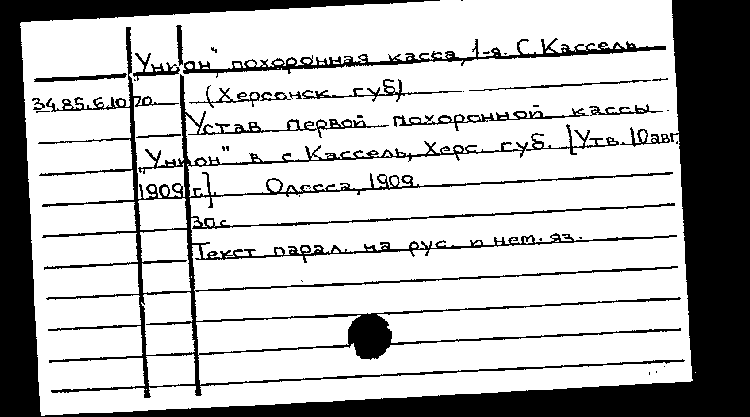 "Унион", похоронная касса, 1-я. С. Кассель
34.85.6.10/70 (Херсонск. губ)
Устав первой похоронной кассы
"Унион" в с. Кассель, Херс. губ. [Утв. 10 авг.
1909 г.]. Одесса, 1909.
30 с
Текст парал. на рус. и нем. яз.